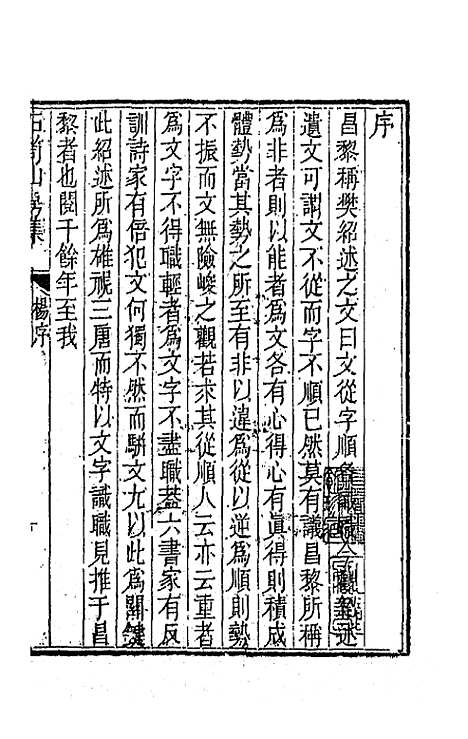 序
昌黎稱樊紹述之文曰文從字順各識職今觀紹述
遺文可謂文不從而字不順已然莫有議昌黎所稱
爲非者則以能者爲文各有心得心有眞得則積成
體勢當其勢之所至有非以違爲從以逆爲順則勢
不振而文無險峻之觀若求其從順人云亦云重者
爲文字不得職輕者爲文字不盡職蓋六書家有反
訓詩家有倍犯文何獨不然而駢文尤以此爲關鍵
此紹述所爲雄視三唐而特以文字識職見推于昌
黎者也閱千餘年至我
石笥山房集
楊序